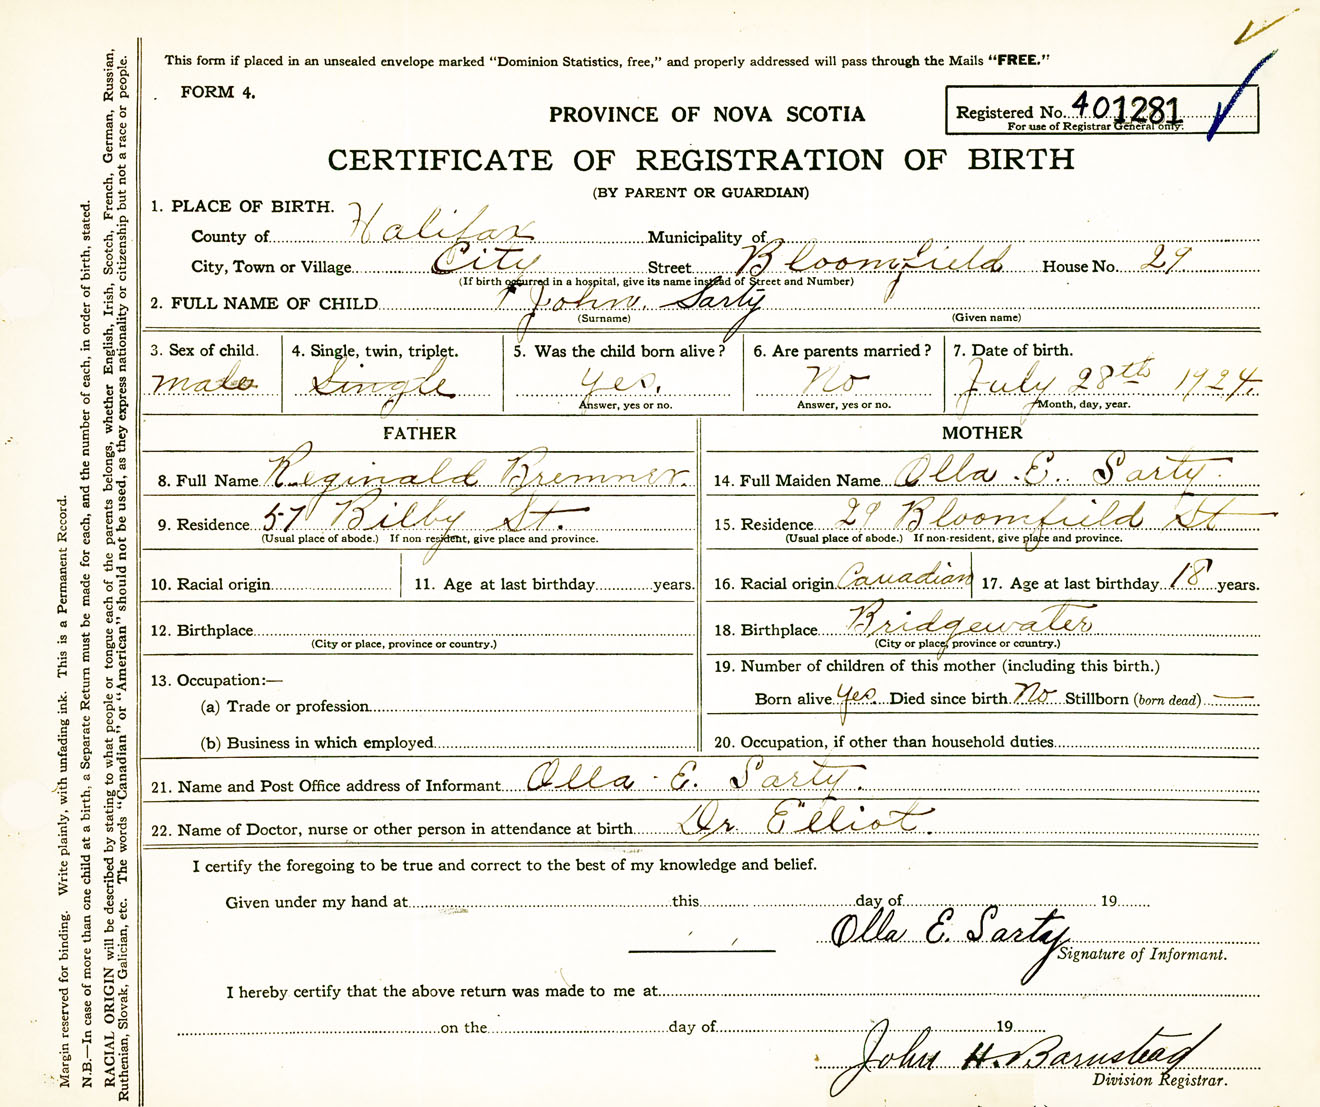 This form if placed in an unsealed envelope marked "Dominion Statistics, free," and properly addressed will pass through the Mails "FREE."
FORM 4.
PROVINCE OF NOVA SCOTIA
Registered No. 401281
For use of Registrar General only.
CERTIFICATE OF REGISTRATION OF BIRTH
(BY PARENT OR GUARDIAN)
1. PLACE OF BIRTH.
County of Halifax Municipality of
City, Town or Village City Street Bloomfield House No. 29
(If birth occurred in a hospital, give its name instead of Street and Number)
2. FULL NAME OF CHILD John Sarty
(Surname) (Given name)
3. Sex of child. 4. Single, twin, triplet. 5. Was the child born alive? 6. Are parents married? 7. Date of birth.
male Single yes. No July 28th 1924.
Answer, yes or no. Answer, yes or no. Month, day, year.
FATHER MOTHER
8. Full Name Reginald Bremner. 14. Full Maiden Name Olla E. Sarty
9. Residence 57 Bilby St. 15. Residence 29 Bloomfield St
(Usual place of abode.) If non-resident, give place and province. (Usual place of abode.) If non-resident, give place and province.
10. Racial origin 11. Age at last birthday years. 16. Racial origin Canadian 17. Age at last birthday 18 years.
12. Birthplace 18. Birthplace Bridgewater
(City or place, province or country.) (City or place, province or country.)
13. Occupation:— 19. Number of children of this mother (including this birth.)
(a) Trade or profession Born alive yes. Died since birth No Stillborn (born dead) —
(b) Business in which employed 20. Occupation, if other than household duties
21. Name and Post Office address of Informant Olla E. Sarty.
22. Name of Doctor, nurse or other person in attendance at birth Dr. Elliot.
I certify the foregoing to be true and correct to the best of my knowledge and belief.
Given under my hand at this day of 19
Olla E. Sarty
Signature of Informant.
I hereby certify that the above return was made to me at
on the day of 19
John H. Barnstead
Division Registrar.
Margin reserved for binding. Write plainly, with unfading ink. This is a Permanent Record.
N.B.—In case of more than one child at a birth, a Separate Return must be made for each, and the number of each, in order of birth, stated.
RACIAL ORIGIN will be described by stating to what people or tongue each of the parents belongs, whether English, Irish, Scotch, French, German, Russian,
Ruthenian, Slovak, Galician, etc. The words "Canadian" or "American" should not be used, as they express nationality or citizenship but not a race or people.